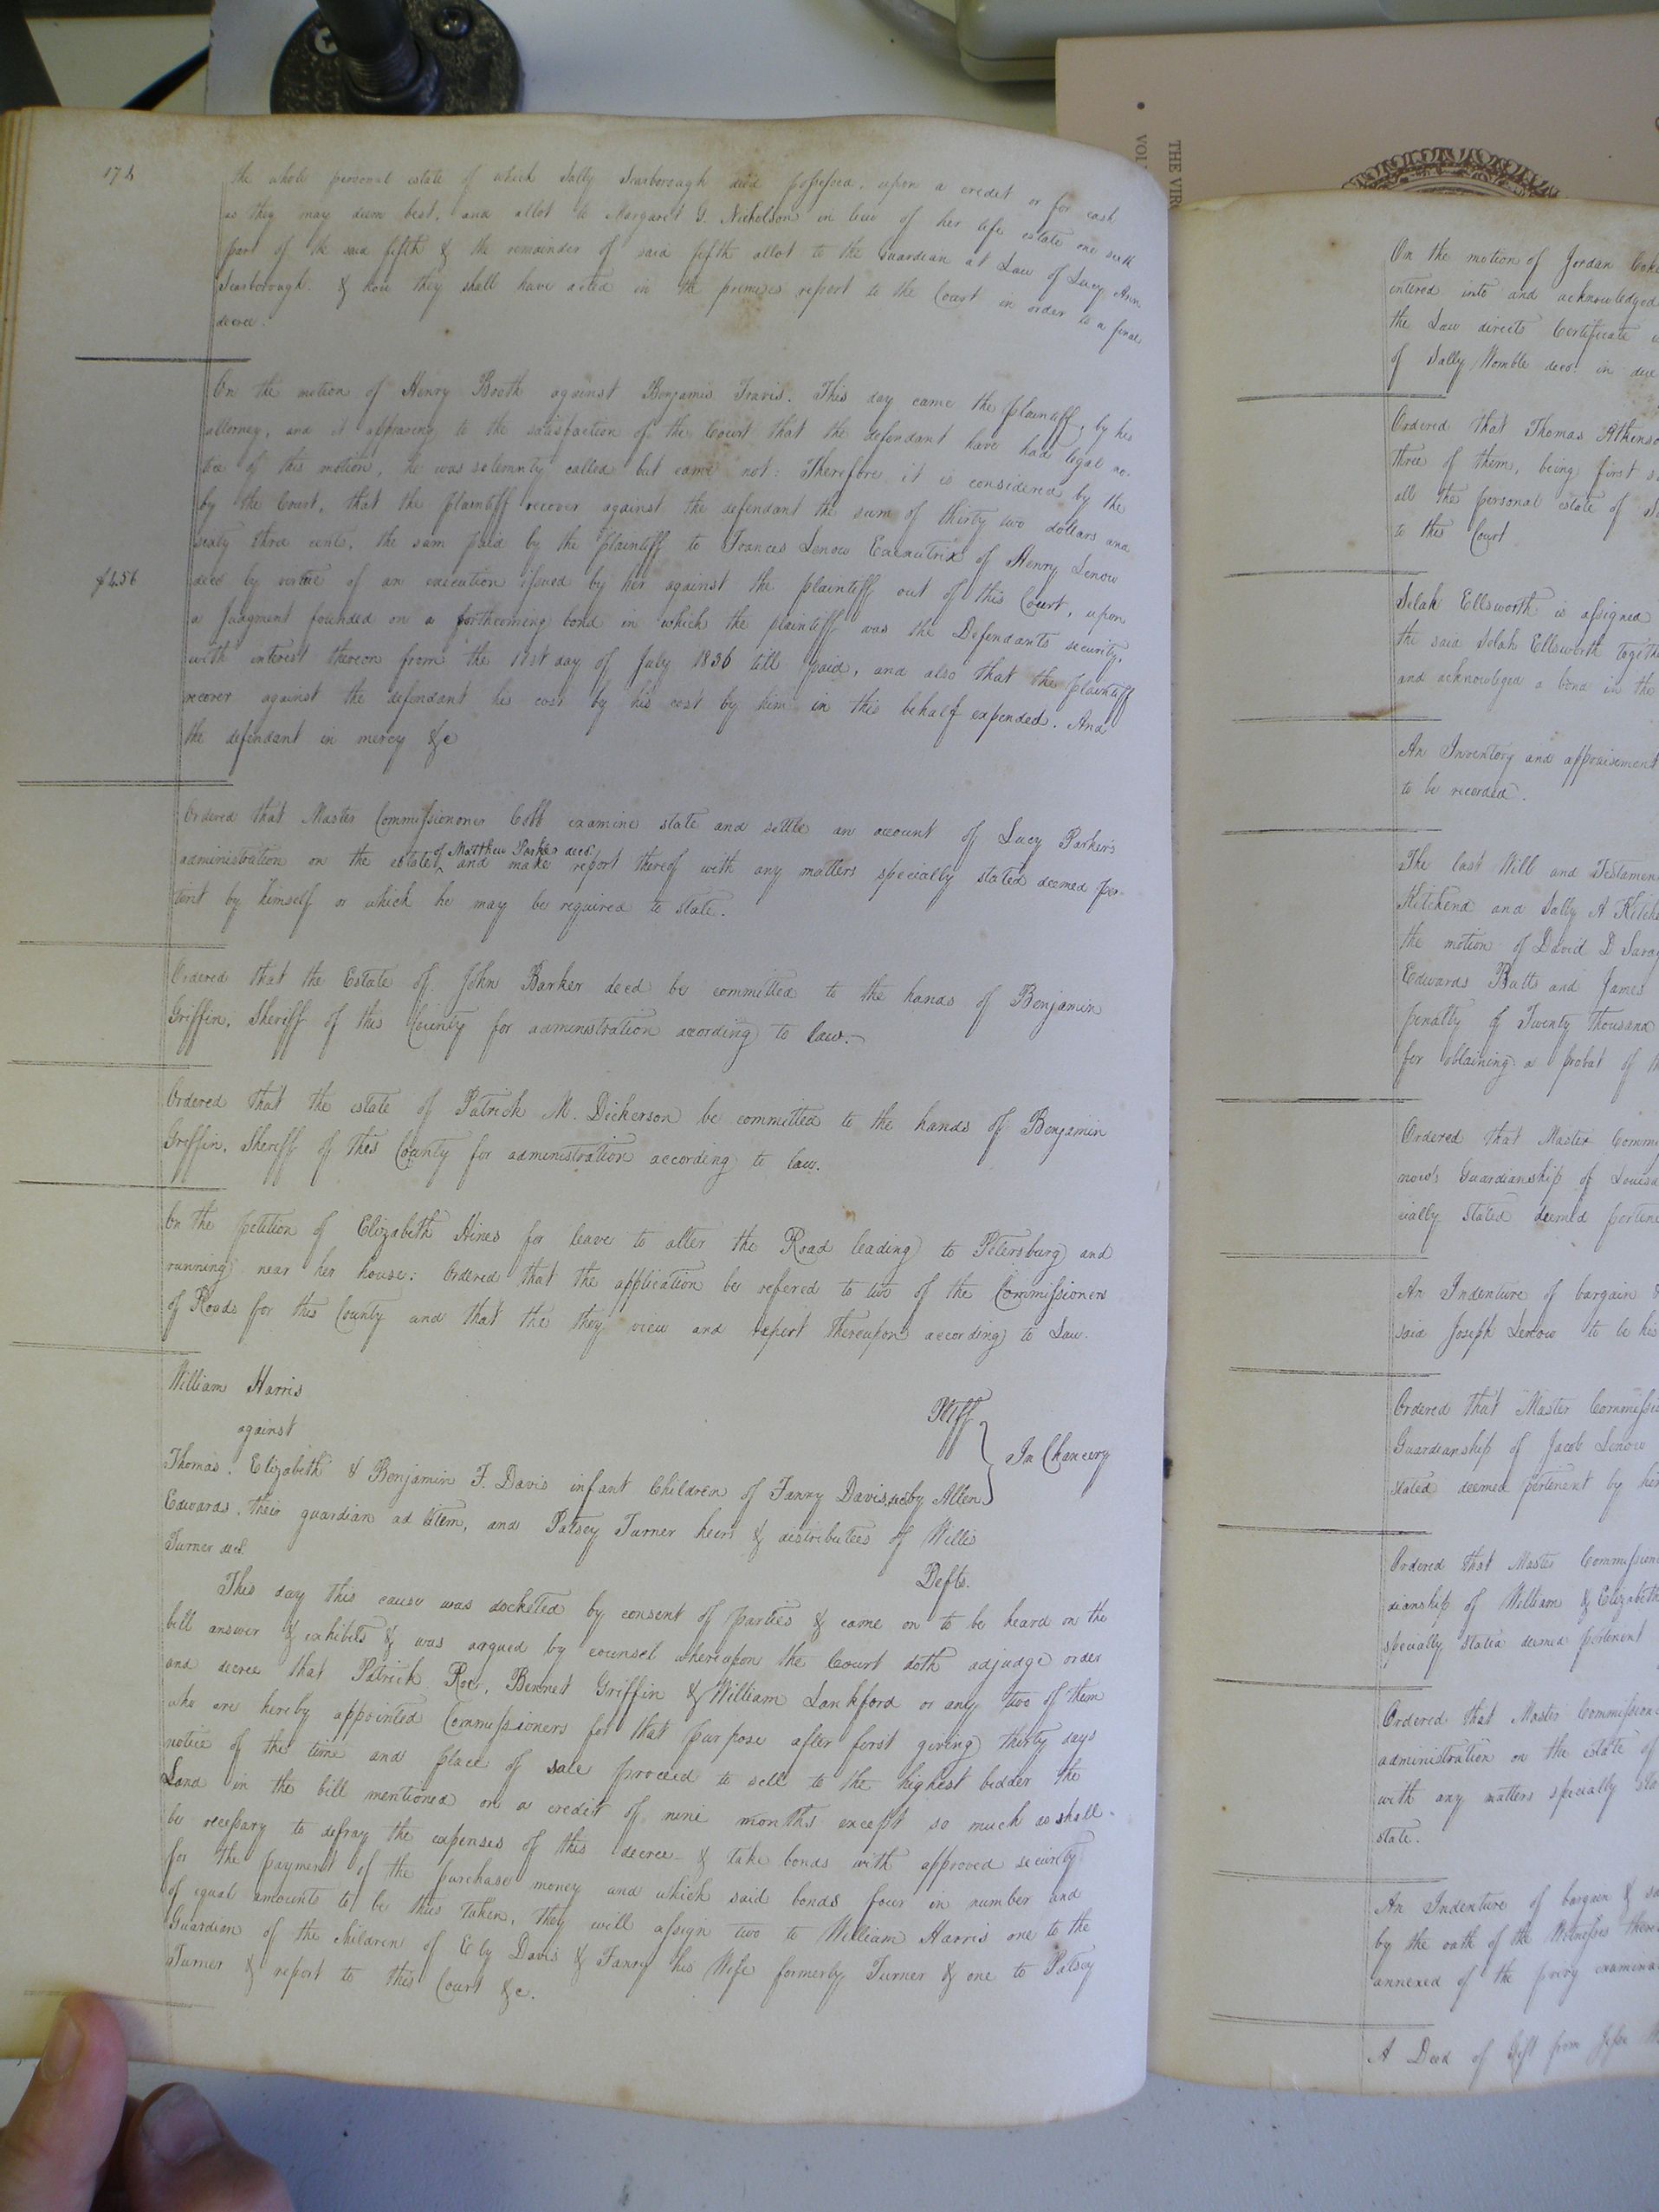 174
the whole personal estate of which Sally Scarborough died possessed, upon a credit or for cash
as they may deem best, and allot to Margaret G. Nicholson in lieu of her life estate one sixth
part of the said fifth & the remainder of said fifth allot to the Guardian at Law of Lucy Ann
Scarborough. & how they shall have acted in the premises report to the Court in order to a final
decree.
On the motion of Henry Booth against Benjamin Travis. This day came the plaintiff, by his
attorney, and it appearing to the satisfaction of the Court that the defendant have had legal no-
tice of this motion, he was solemnly called but came not: Therefore it is considered by the
by the Court, that the plaintiff recover against the defendant the sum of thirty two dollars and
sixty three cents, the sum paid by the plaintiff to Frances Lenow Executrix of Henry Lenow
$4.56
decd by virtue of an execution issued by her against the plaintiff out of this Court, upon
a Judgment founded on a forthcoming bond in which the plaintiff was the Defendants security,
with interest thereon from the 1st day of July 1836 till paid, and also that the plaintiff
recover against the defendant his cost by his cost by him in this behalf expended. And
the defendant in mercy &c
Ordered that Master Commissiononer Cobb examine state and settle an account of Lucy Parker's
administration on the estate of Matthew Parker decd. and make report thereof with any matters specially stated deemed per-
tinent by himself or which he may be required to state.
Ordered that the Estate of John Barker decd be committed to the hands of Benjamin
Griffin, Sheriff of this County for administration acording to law.
Ordered that the estate of Patrick M. Dickerson be committed to the hands of Benjamin
Griffin, Sheriff of this County for administration according to law.
On the petition of Elizabeth Hines for leave to alter the Road leading to Petersburg and
running near her house: Ordered that the application be refered to two of the Commissioners
of Roads for this County and that the they view and report thereupon according to Law.
William Harris Pltff
against
In Chancery
Thomas, Elizabeth & Benjamin F. Davis infant Children of Fanny Davis decd by Allen
Edwards, their guardian ad litem, and Patsey Turner heirs & distributees of Willis
Turner decd. Defts.
This day this cause was docketed by consent of parties & came on to be heard on the
bill answer & exhibits & was argued by counsel whereupon the Court doth adjudge order
and decree that Patrick Roe, Bennet Griffin & William Lankford or any two of them
who are hereby appointed Commissioners for that purpose after first giving thirty days
notice of the time and place of sale proceed to sell to the highest bidder the
Land in the bill mentioned on a credit of nine months except so much as shall
be necessary to defray the expenses of this decree & take bonds with approved security
for the payment of the purchase money and which said bonds four in number and
of equal amounts to be thus taken, they will assign two to William Harris one to the
Guardian of the Children of Ely Davis & Fanny his Wife formerly Turner & one to Patsey
Turner & report to this Court &c.
THE VIR
VOL
On the motion of Jordan
entered into and acknowledged
the Law directs Certificate
of Sally Womble decd. in due
Ordered that Thomas Atkinso
three of them, being first
all the personal estate of
to this Court
Selah Ellsworth is assigned
the said Selah Ellsworth togethe
and acknowleged a bond in the
An Inventory and appraisement
to be recorded.
The last Will and Testamen
Kitchend and Sally A Kitch
the motion of David D
Edwards Butts and James
penalty of Twenty thousand
for obtaining a probat of
Ordered that Master Comm
now's Guardianship of Louisa
cially stated deemed pertin
An Indenture of bargain &
said Joseph Lenow to be his
Ordered that Master Commissi
Guardianship of Jacob Lenow
stated deemed pertenent by her
Ordered that Master Commission
dianship of William & Elizabeth
specially stated deemed pertenent
Ordered that Master Commission
administration on the estate of
with any matters specially sta
state.
An Indenture of bargain &
by the oath of the Witnesses there
annexed of the privy examina
A Deed of Gift from Jesse